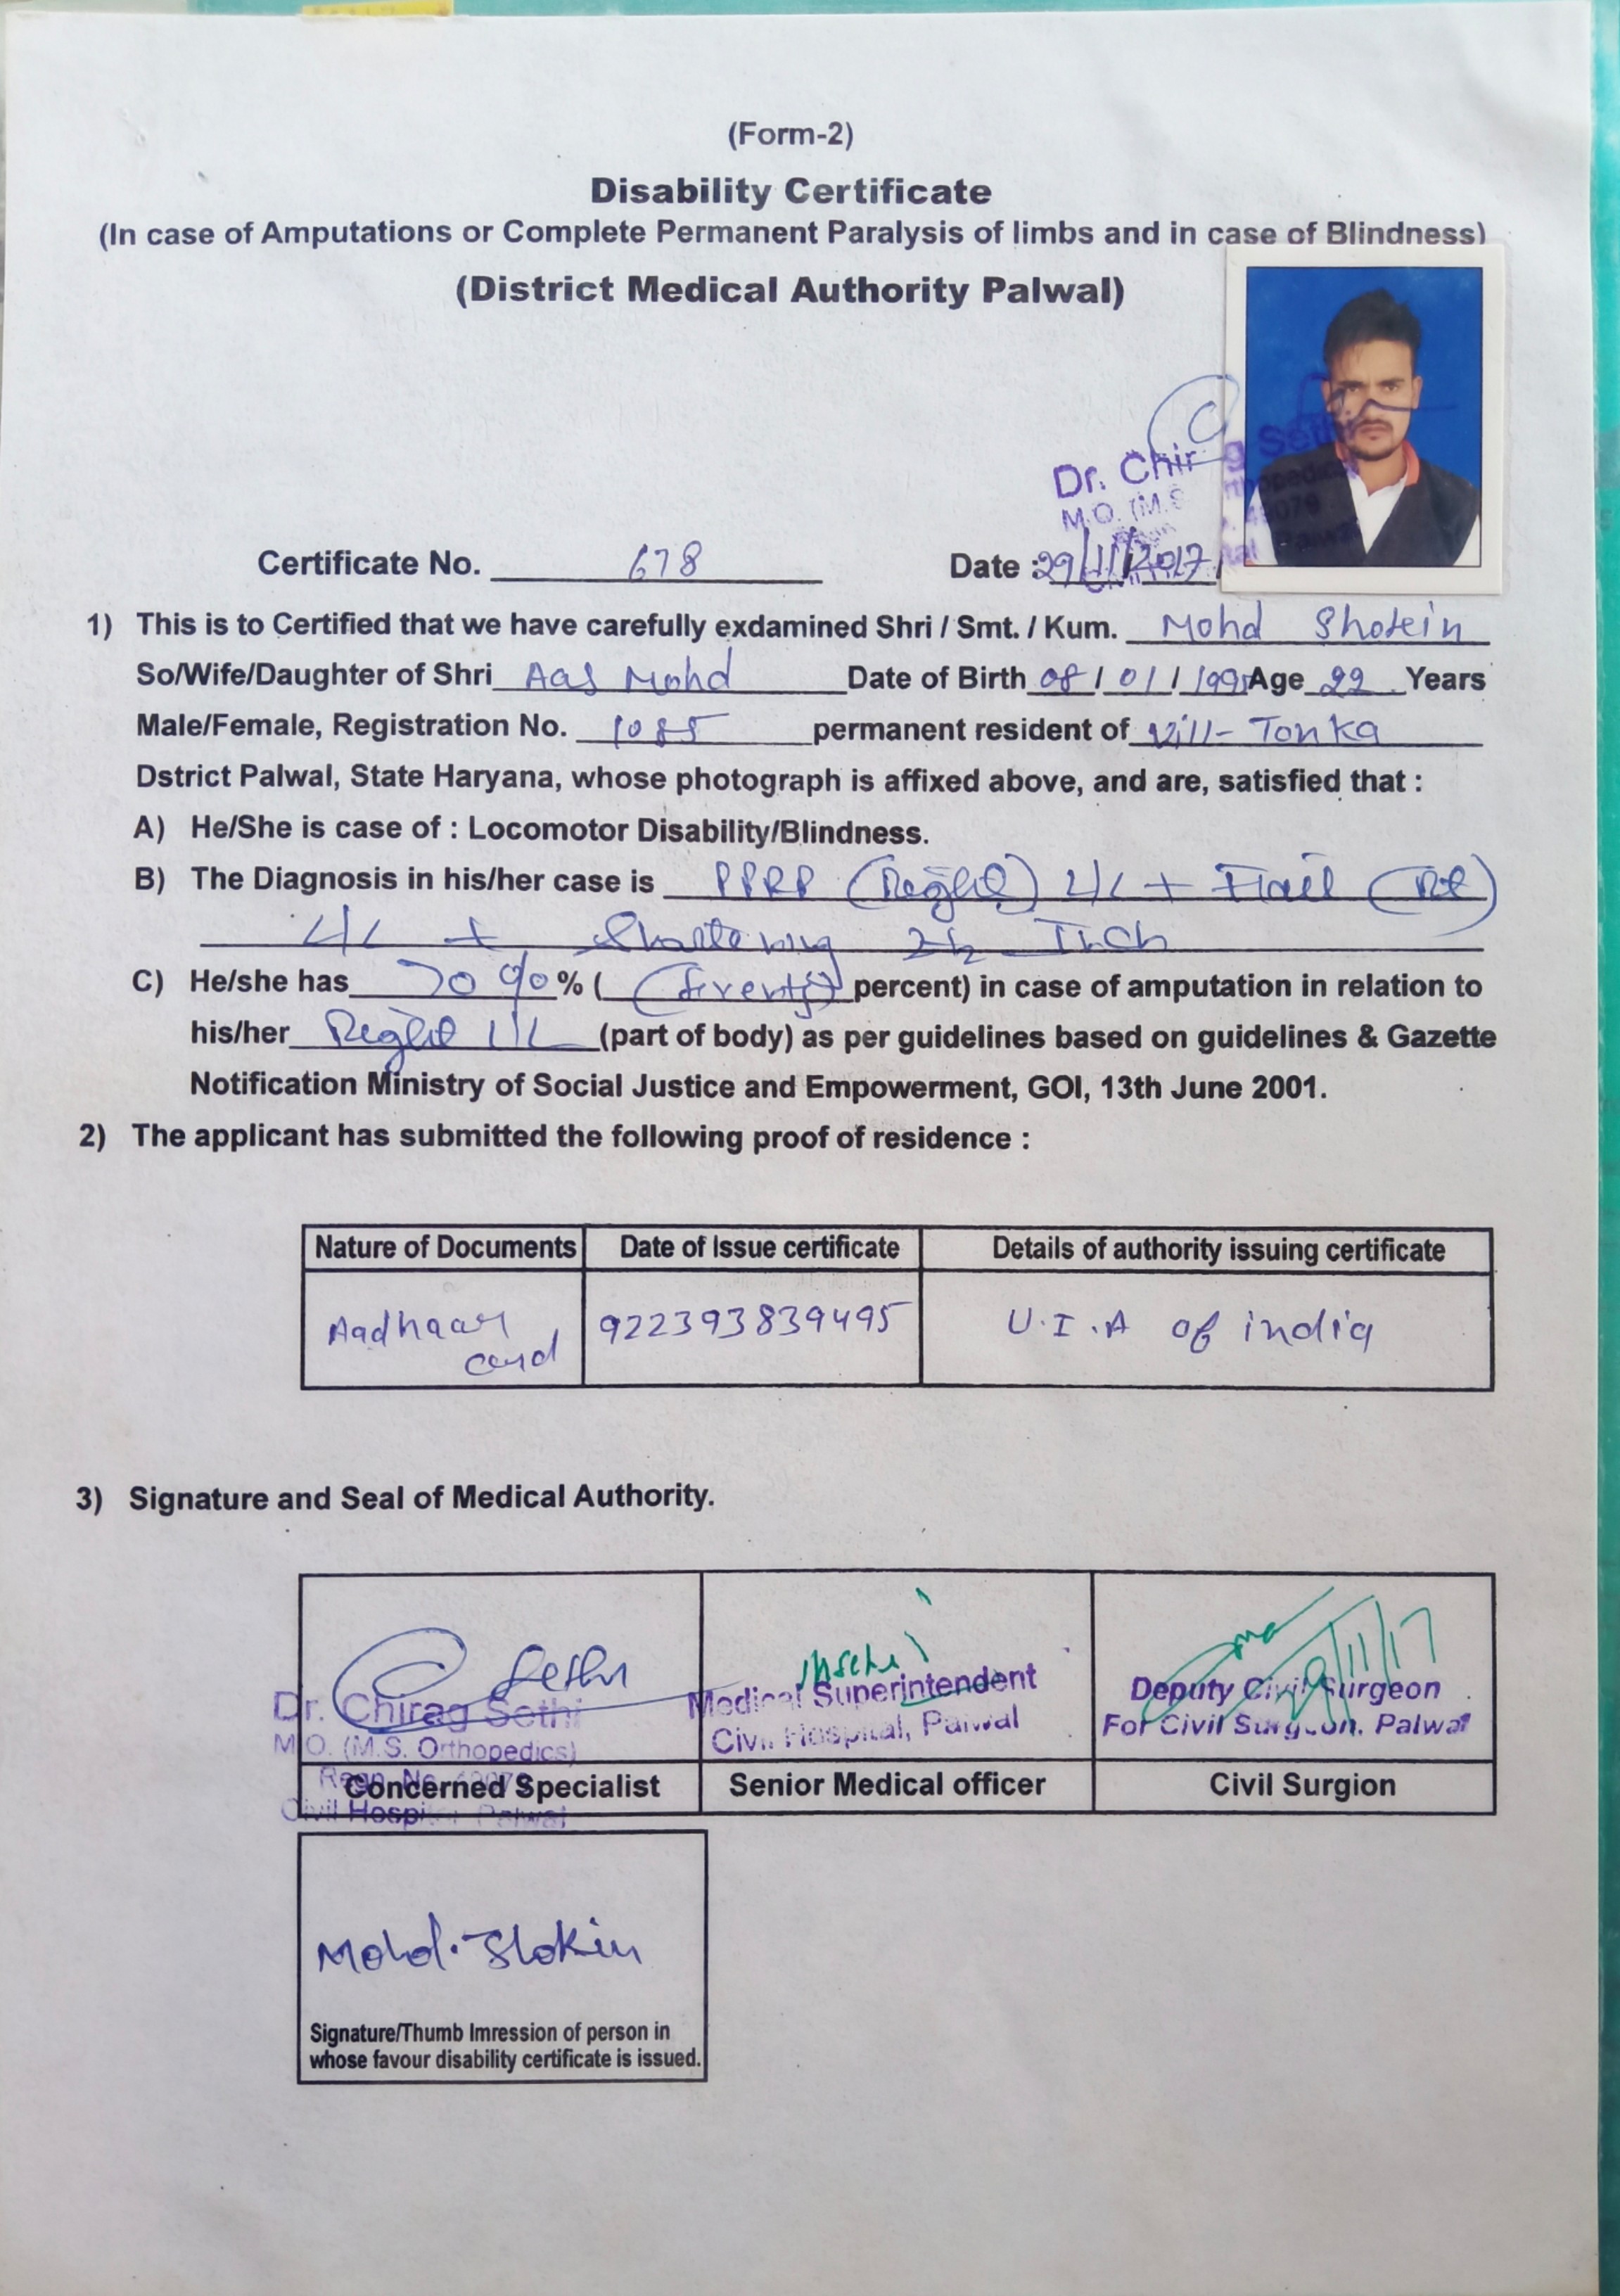 (Form-2)
Disability Certificate
(In case of Amputations or Complete Permanent Paralysis of limbs and in case of Blindness)
(District Medical Authority Palwal)
Dr. Chirag Sethi
M.O. (M.S. Orthopedics)
Certificate No. 678 Date : 29/11/2017
1) This is to Certified that we have carefully exdamined Shri / Smt. / Kum. Mohd Shokein
So/Wife/Daughter of Shri Aas Mohd Date of Birth 08 / 01 / 1995 Age 22 Years
Male/Female, Registration No. 1085 permanent resident of Vill- Tonka
Dstrict Palwal, State Haryana, whose photograph is affixed above, and are, satisfied that :
A) He/She is case of : Locomotor Disability/Blindness.
B) The Diagnosis in his/her case is PPRP (Right) L/L + Flail (Rt)
L/L + Shortening 2½ Inch
C) He/she has 70 % % ( (Seventy) percent) in case of amputation in relation to
his/her Right L/L (part of body) as per guidelines based on guidelines & Gazette
Notification Ministry of Social Justice and Empowerment, GOI, 13th June 2001.
2) The applicant has submitted the following proof of residence :
Nature of Documents Date of Issue certificate Details of authority issuing certificate
Aadhaar card 922393839495 U.I.A of india
3) Signature and Seal of Medical Authority.
Sethi
Dr. Chirag Sethi Medical Superintendent Deputy Civil Surgeon
M.O. (M.S. Orthopedics) Civil Hospital, Palwal For Civil Surgeon, Palwal
Regn. No.
Concerned Specialist Senior Medical officer Civil Surgion
Civil Hospital Palwal
Mohd. Shokin
Signature/Thumb Imression of person in
whose favour disability certificate is issued.